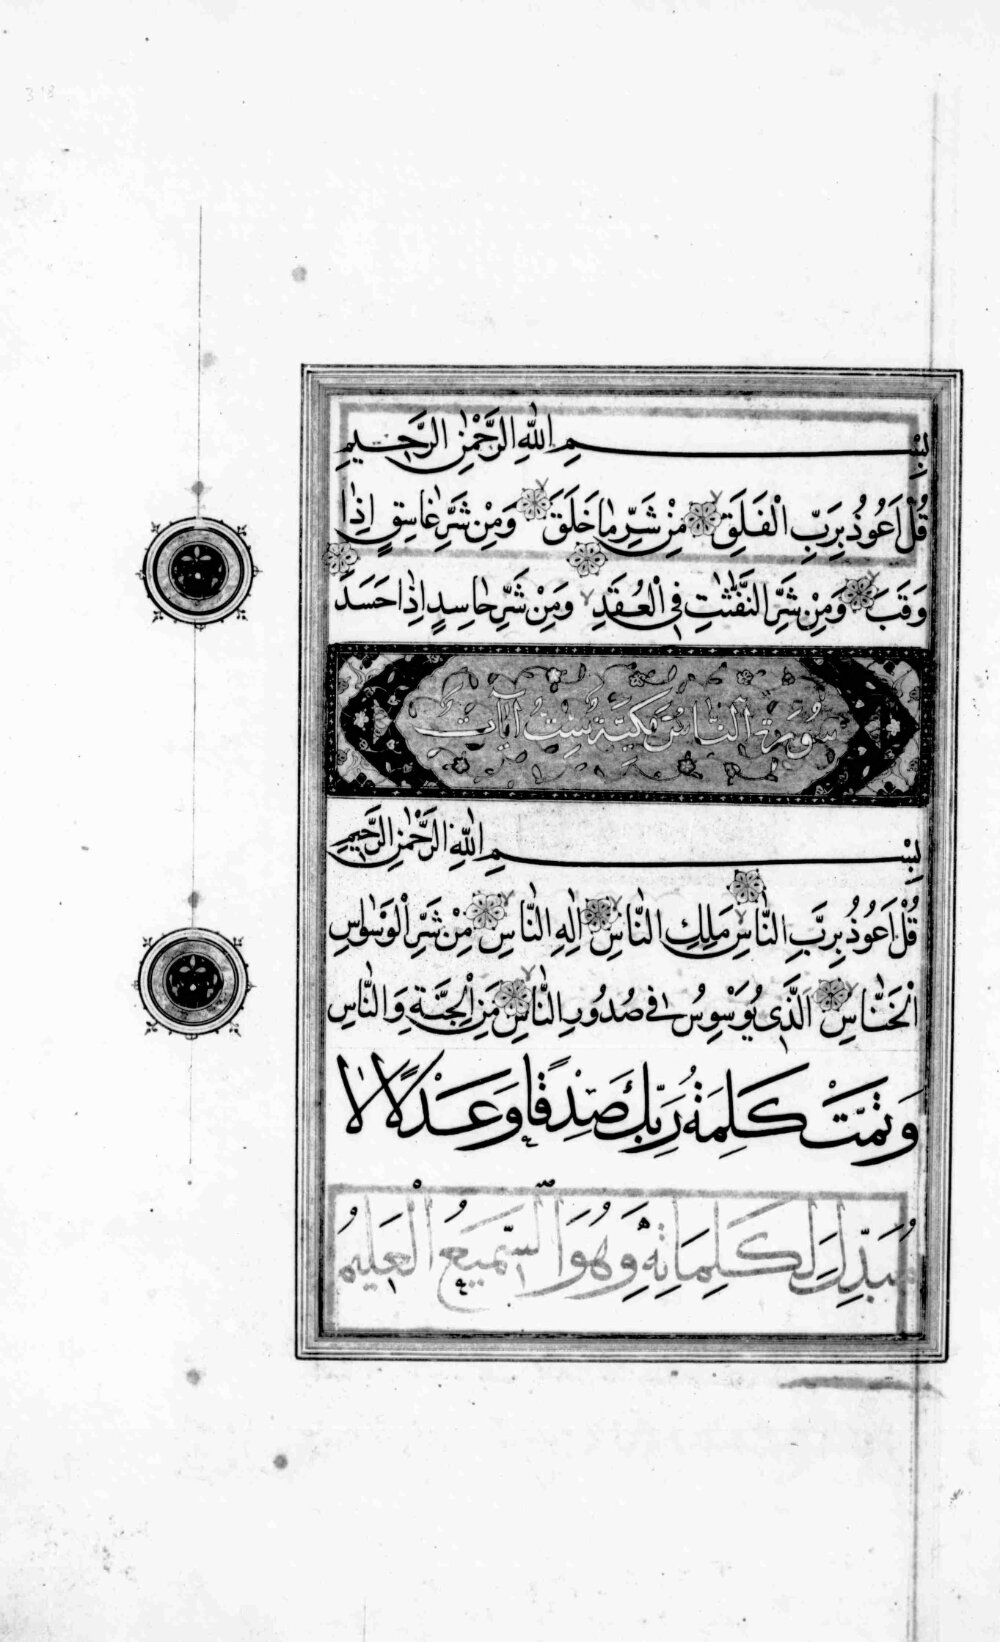 318
بِسْمِ اللّٰهِ الرَّحْمٰنِ الرَّحِيمِ
قُلْ اَعُوذُ بِرَبِّ الْفَلَقِ مِنْ شَرِّ مٰا خَلَقَ وَمِنْ شَرِّ غٰاسِقٍ اِذٰا
وَقَبَ وَمِنْ شَرِّ النَّفّٰثٰتِ فِي الْعُقَدِ وَمِنْ شَرِّ حٰاسِدٍ اِذٰا حَسَدَ
سُورَة النّاس مكيّة ستّ آيات
بِسْمِ اللّٰهِ الرَّحْمٰنِ الرَّحِيمِ
قُلْ اَعُوذُ بِرَبِّ النّٰاسِ مَلِكِ النّٰاسِ اِلٰهِ النّٰاسِ مِنْ شَرِّ الْوَسْوٰاسِ
الْخَنّٰاسِ الَّذِي يُوَسْوِسُ فِي صُدُورِ النّٰاسِ مِنَ الْجِنَّةِ وَالنّٰاسِ
وَتَمَّتْ كَلِمَةُ رَبِّكَ صِدْقًا وَعَدْلًا لَا
مُبَدِّلَ لِكَلِمَاتِهِ وَهُوَ السَّمِيعُ الْعَلِيمُ